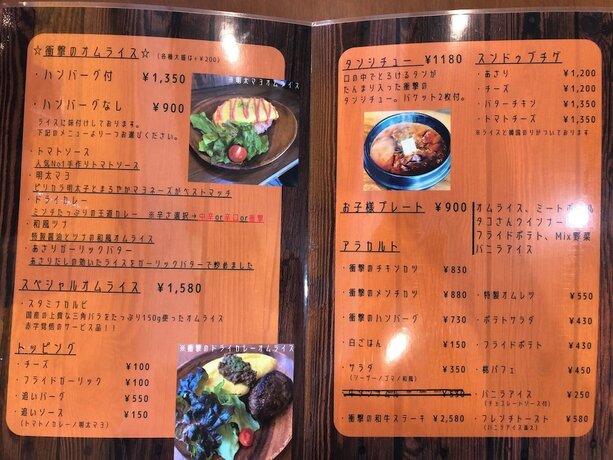 ☆衝撃のオムライス☆ (各種大盛は+¥200)
・ハンバーグ付 ¥1,350
・ハンバーグなし ¥900
ライスに味付けしております。
下記のメニューより一つお選びください。
・トマトソース
人気No1手作りトマトソース
・明太マヨ
ピリカラ明太子とまろやかマヨネーズがベストマッチ
・ドライカレー
ミンチたっぷりの王道カレー ※辛さ選択→中辛or辛口or衝撃
・和風ツナ
特製醤油とツナの和風オムライス
・あさりガーリックバター
あさりだしの効いたライスをガーリックバターで炒めました
※明太マヨオムライス
スペシャルオムライス ¥1,580
・スタミナカルビ
国産の上質な三角バラをたっぷり150g使ったオムライス
赤字覚悟のサービス品!!
トッピング
・チーズ ¥100
・フライドガーリック ¥100
・追いバーグ ¥550
・追いソース ¥150
(トマト/カレー/明太マヨ)
※衝撃のドライカレーオムライス
タンシチュー ¥1180
口の中でとろけるタンが
たんまり入った衝撃の
タンシチュー。バケット2枚付。
スンドゥブチゲ
・あさり ¥1,200
・チーズ ¥1,200
・バターチキン ¥1,350
・トマトチーズ ¥1,350
※ライスと韓国のりがついております
お子様プレート ¥900
オムライス、ミートボール
タコさんウインナー
フライドポテト、Mix野菜
バニラアイス
アラカルト
・衝撃のチキンカツ ¥830
・衝撃のメンチカツ ¥880
・衝撃のハンバーグ ¥730
・白ごはん ¥150
・サラダ ¥350
(シーザー/ゴマ/和風)
・衝撃の和牛ステーキ ¥2,580
・特製オムレツ ¥550
・ポテトサラダ ¥430
・フライドポテト ¥430
・桃パフェ ¥450
・バニラアイス ¥250
(チョコレートソース付)
・フレンチトースト ¥580
(バニラアイス添え)